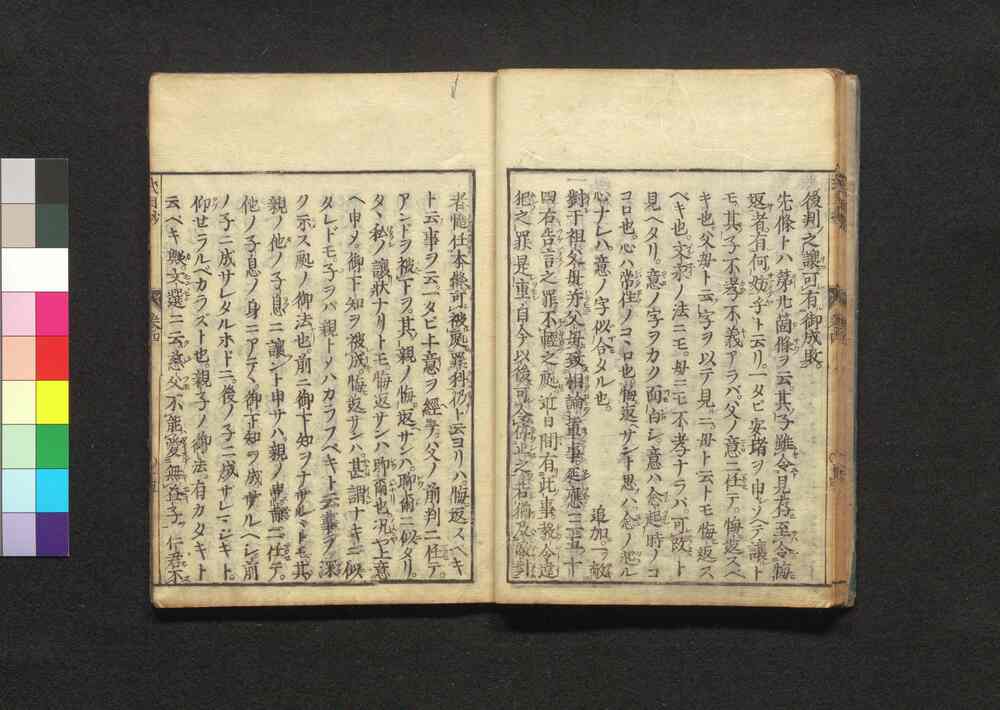 後判之讓可有御成敗
先條トハ第廿箇條ヲ云其子雖令見存至令悔
返者有何妨乎ト云リ一タビ安堵ヲ申シソヘテ讓ト
モ其子不孝不義アラバ父ノ意ニ任テ悔返スベ
キ也父母ト云字ヲ以テ見ニ母ト云トモ悔返ス
ベキ也文永ノ法ニモ母ニモ不孝ナラバ可改ト
見ヘタリ意ノ字ヲカク面白シ意ハ念起時ノコ
コロ也心ハ常住ノコヽロ也悔返サント思ハ念ノ起ル
心ナレハ意ノ字似合タル也
追加一ヲ敵
對于祖父母并父母致相論輩事延應二五十
四右告言之罪不輕之處近日間有此事教令違
犯之罪是重自今以後可令停止之若猶及敵對
者隨仕本條可被處罪科仍ト云ヨリハ悔返スベキ
ト云事ヲ云一タビ上意ヲ經テ父ノ前判ニ任テ
アンドヲ被下ヲ其親ノ悔返サンハ聊爾ニ似タリ
タヽ私ノ讓状ナリトモ悔返サンハ聊爾也况ヤ上意
ヘ申メ御下知ヲ被成悔返サンハ甚謂ナキニ似
タレドモ子ヲバ親トノハカラフベキト云事ヲ深
ク示ス処ノ御法也前ニ御下知ヲナサルヽトモ其
親ノ他ノ子息ニ讓ント申サハ親ノ申部ニ任テ
他ノ子息ノ身ニアテヽ御下知ヲ成サルヘシ前
ノ子ニ成サレタルホドニ後ノ子ニ成サレマジキト
仰セラルベカラズト也親子ノ御法有カタキト
云ベキ歟文選ニ云慈父不能愛無益子仁君不